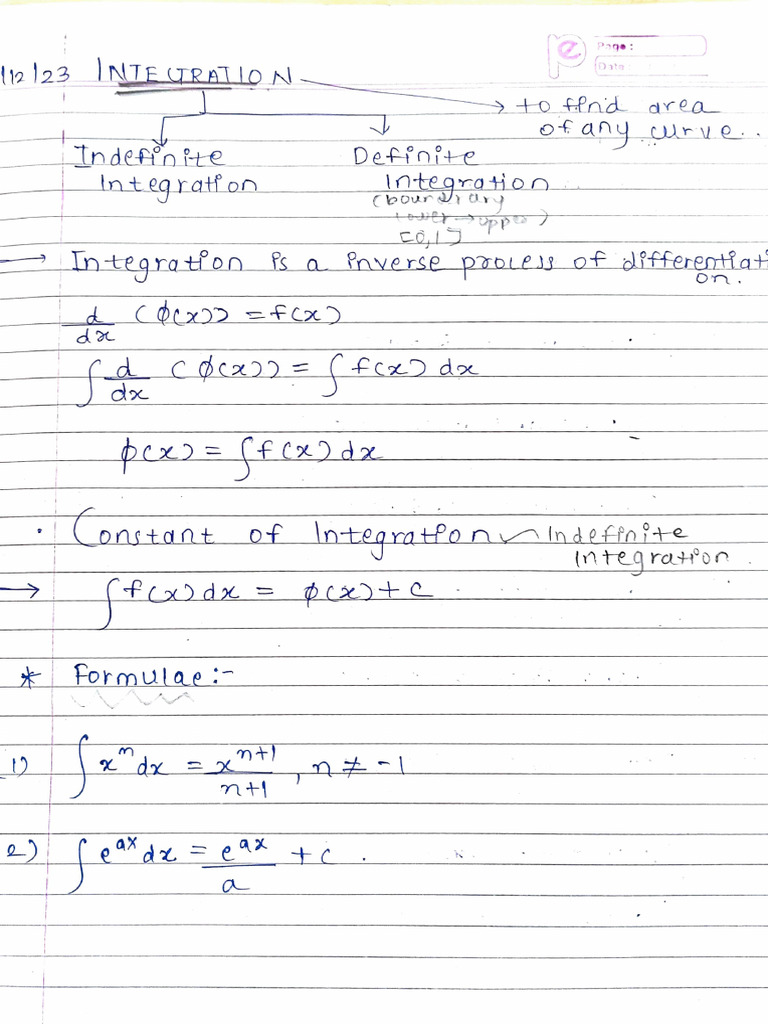 Page :
Date
/12/23 INTEGRATION → to find area
of any curve..
Indefinite Definite
Integration Integration
(boundary
lower → upper)
[0,1]
→ Integration is a inverse process of differentiati
on.
d/dx (ϕ(x)) = f(x)
∫ d/dx (ϕ(x)) = ∫ f(x) dx
ϕ(x) = ∫ f(x) dx
• Constant of Integration Indefinite
Integration
→ ∫ f(x) dx = ϕ(x) + c
* Formulae:-
1) ∫ xⁿ dx = xⁿ⁺¹/n+1 , n ≠ -1
2) ∫ e^ax dx = e^ax/a + c .